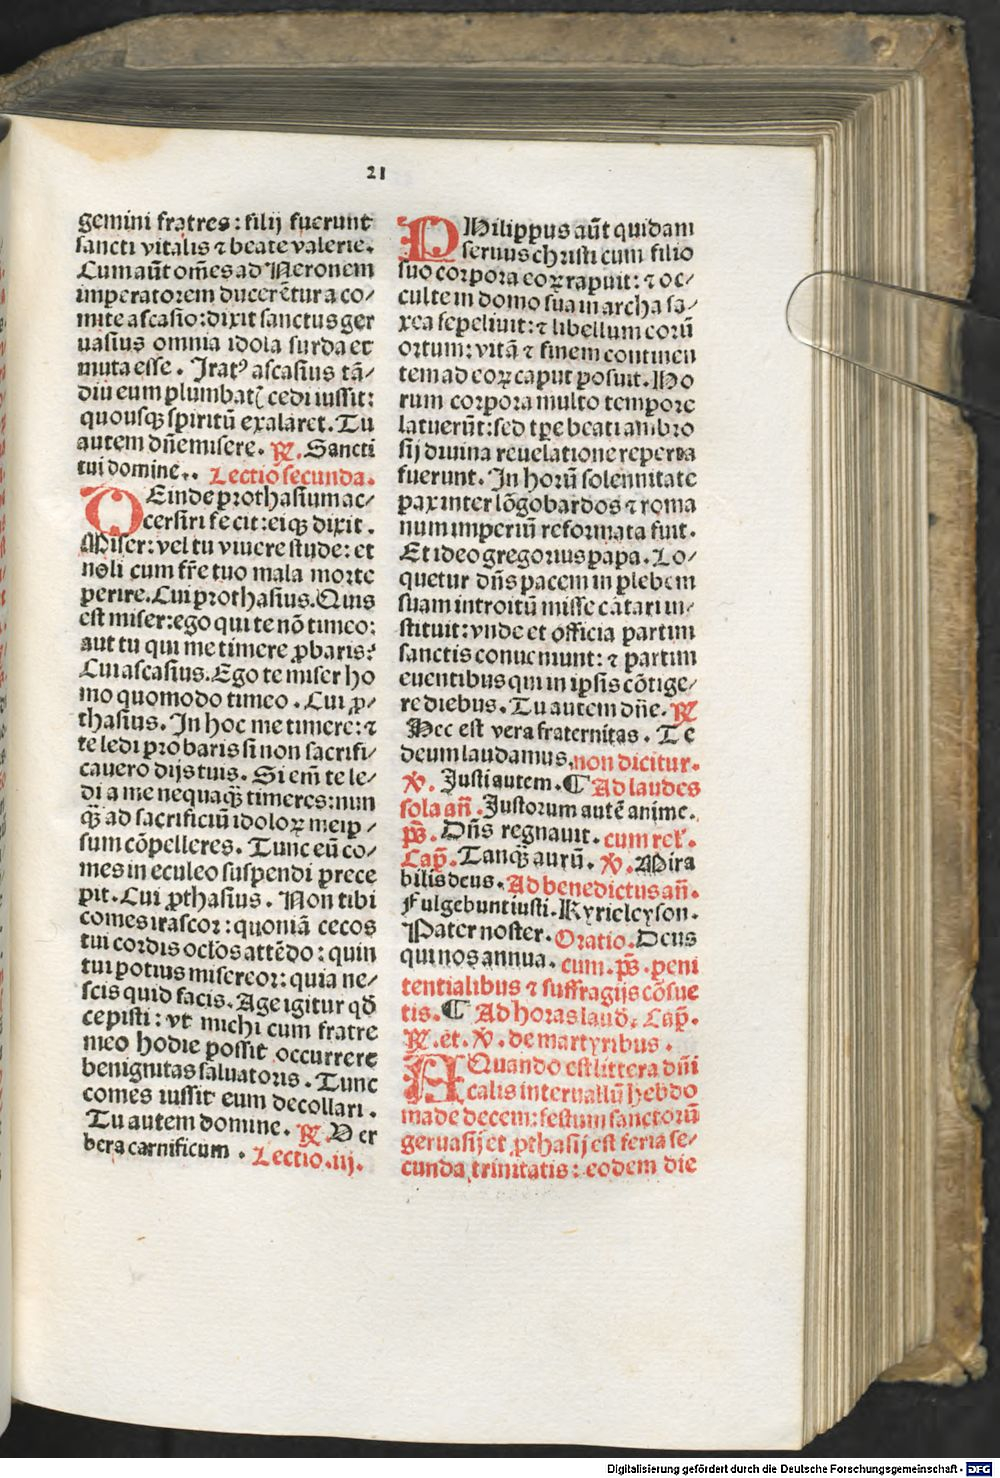 21
gemini fratres: filij fuerunt
sancti vitalis ⁊ beate valerie.
Cum aūt om̄es ad Neronem
imperatorem ducerētur a co/
mite ascasio: dixit sanctus ger
uasius omnia idola surda et
muta esse. Iratꝰ ascasius tā/
diu eum plumbatꝭ cedi iussit:
quousqꝫ spiritū exalaret. Tu
autem dn̄e misere. ℟. Sancti
tui domine.. Lectio secunda.
DEinde prothasium ac/
cersiri fecit: eiqꝫ dixit.
Miser: vel tu viuere stude: et
noli cum fr̄e tuo mala morte
perire. Cui prothasius. Quis
est miser: ego qui te nō timeo:
aut tu qui me timere ꝓbaris?
Cui ascasius. Ego te miser ho
mo quomodo timeo. Cui ꝓ/
thasius. In hoc me timere: ⁊
te ledi probaris si non sacrifi/
cauero dijs tuis. Si em̄ te le/
di a me nequaqꝫ timeres: nun
qꝫ ad sacrificiū idoloꝝ me ip/
sum cōpelleres. Tunc eū co/
mes in eculeo suspendi prece
pit. Cui ꝓthasius. Non tibi
comes irascor: quoniā cecos
tui cordis oclos attēdo: quin
tui potius misereor: quia ne/
scis quid facis. Age igitur qd̄
cepisti: vt michi cum fratre
meo hodie possit occurrere
benignitas saluatoris. Tunc
comes iussit eum decollari.
Tu autem domine. ℟. Ver
bera carnificum. Lectio.iij.
PHilippus aūt quidam
seruus christi cum filio
suo corpora eoꝝ rapuit: ⁊ oc/
culte in domo sua in archa sa/
xea sepeliuit: ⁊ libellum eorū
ortum: vitā ⁊ finem continen
tem ad eoꝝ caput posuit. Ho
rum corpora multo tempore
latuerūt: sed tꝑe beati ambro
sij diuina reuelatione reperta
fuerunt. In horū solennitate
pax inter lōgobardos ⁊ roma
num imperiū reformata fuit.
Et ideo gregorius papa. Lo/
quetur dn̄s pacem in plebem
suam introitū misse cātari in/
stituit: vnde et officia partim
sanctis conueniunt: ⁊ partim
euentibus qui in ipsis cōtige/
re diebus. Tu autem dn̄e. ℟
Hec est vera fraternitas. Te
deum laudamus, non dicitur.
℣. Justi autem. ¶ Ad laudes
sola an̄. Justorum autē anime.
ps̄. Dn̄s regnauit. cum rel̄.
Cap̄. Tanqꝫ aurū. ℣. Mira
bilis deus. Ad benedictus an̄.
Fulgebunt iusti. Kyrieleyson.
Pater noster. Oratio. Deus
qui nos annua. cum. ps̄. peni
tentialibus ⁊ suffragijs cōsue
tis. ¶ Ad horas laud̄. Cap̄.
℟. et. ℣. de martyribus.
AQuando est littera dn̄i
calis interuallū hebdo
made decem: festum sanctorū
geruasij et ꝓthasij est feria se/
cunda trinitatis: eodem die
Digitalisierung gefördert durch die Deutsche Forschungsgemeinschaft - DFG